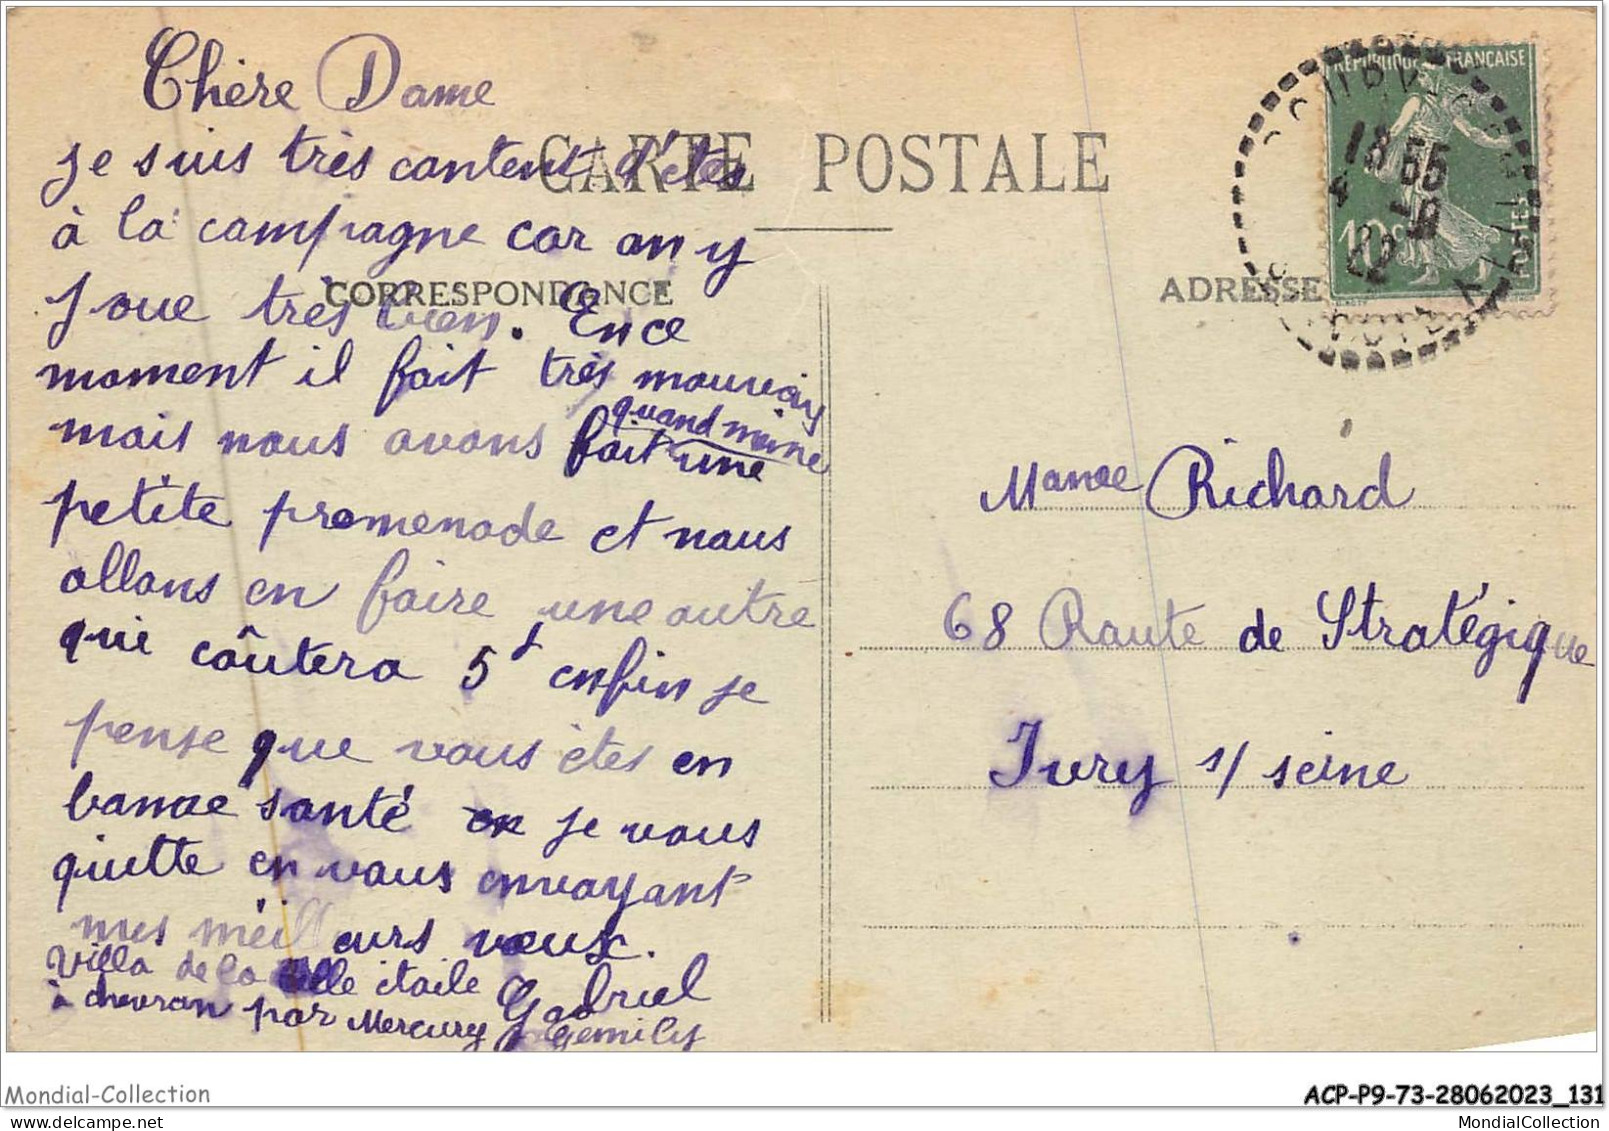 Chère Dame
je suis très cantent d'êtes
CARTE POSTALE
à la campagne car on y
CORRESPONDANCE
joue très bien. En ce
moment il fait très mauvais
quand même
mais nous avons fait une
petite promenade et nous
allons en faire une autre
qui coûtera 5f enfin je
pense que vous êtes en
bonne santé je vous
quitte en vous envoyant
mes meilleurs vœux.
Villa de la belle étoile Gabriel
à chevron par Mercury Gemily
REPUBLIQUE FRANÇAISE
10c POSTES
18 55
4 -9
22
ADRESSE
Mame Richard
68 Route de Stratégique
Ivry s/ seine
Mondial-Collection
ACP-P9-73-28062023_131
MondialCollection